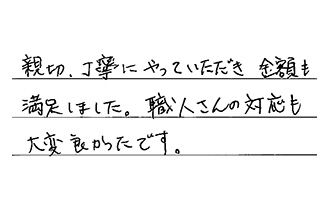 親切、丁寧にやっていただき 金額も
満足しました。職人さんの対応も
大変良かったです。